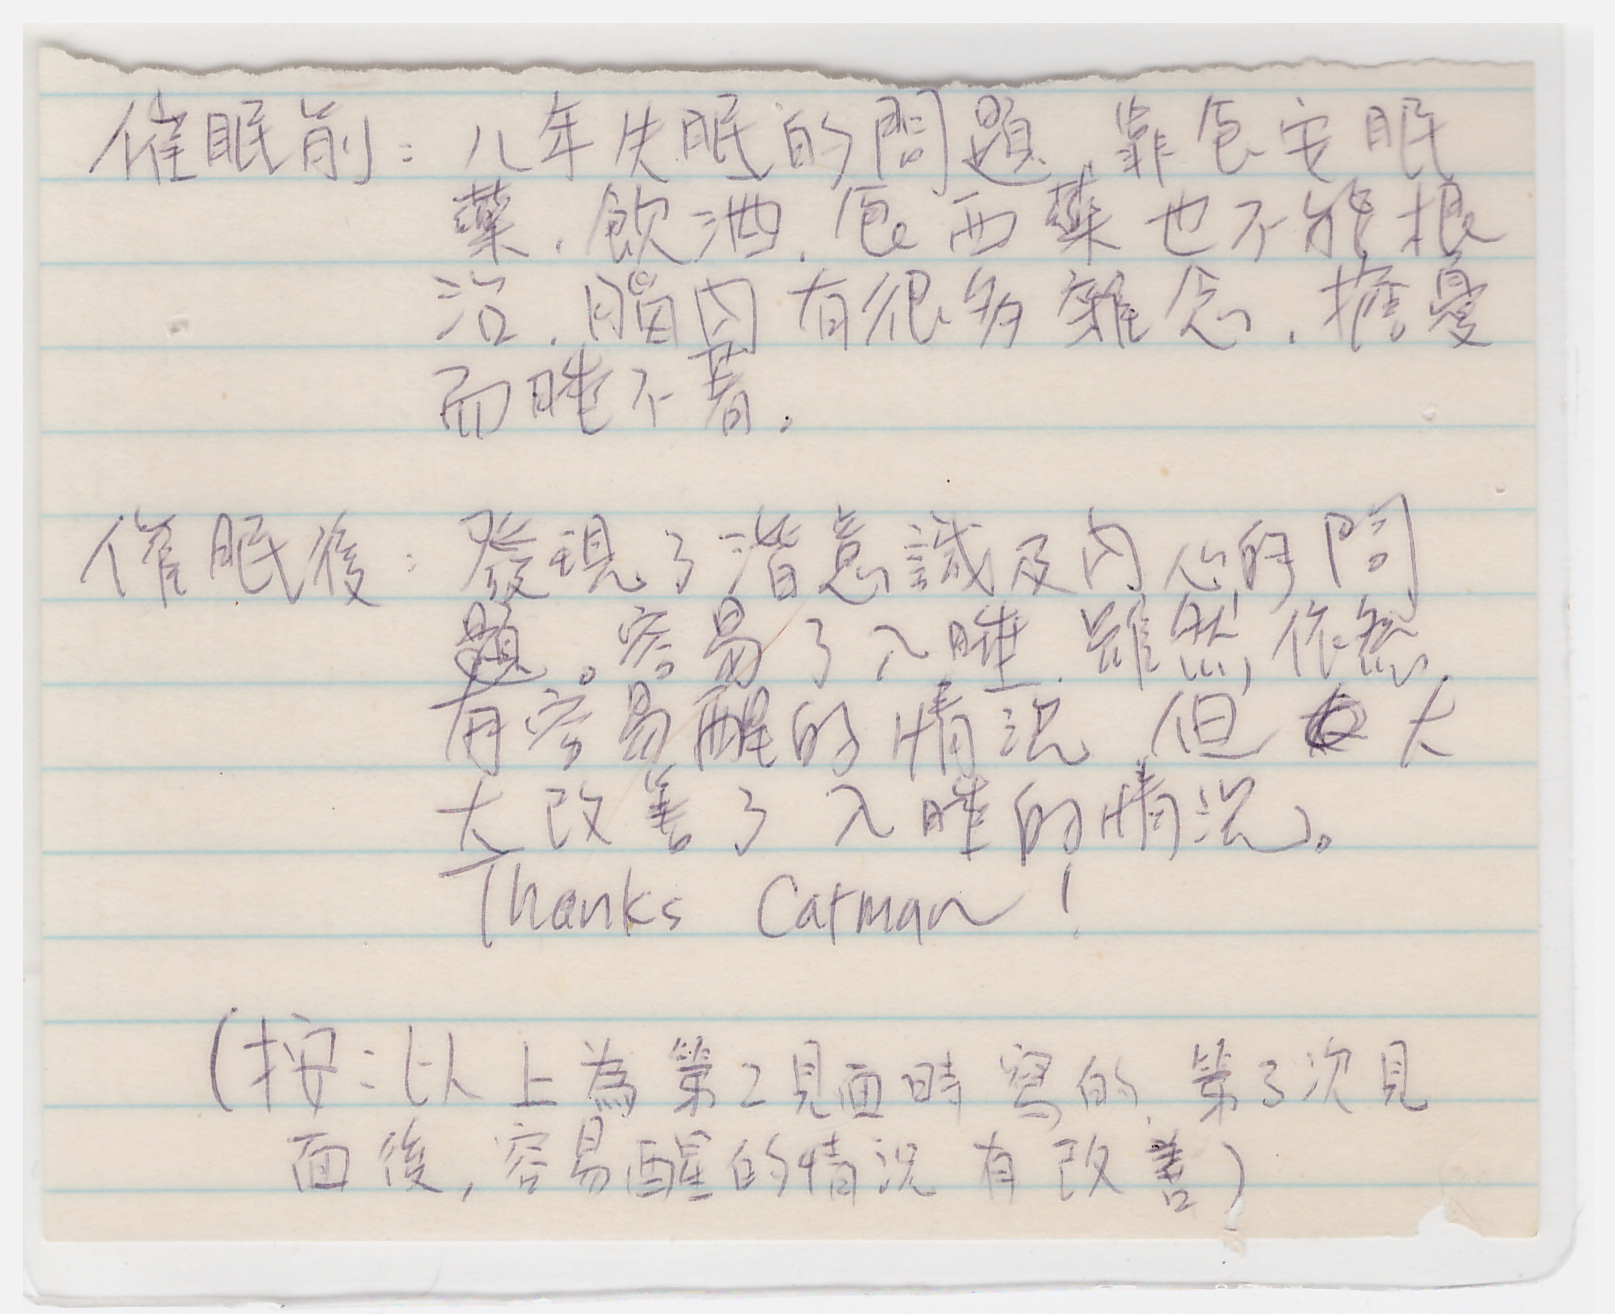 催眠前：八年失眠的問題，靠食安眠
藥，飲酒，食西藥也不能根
治，腦內有很多雜念，擔憂
而睡不着。
催眠後：發現了潛意識及內心的問
題。容易了入睡，雖然依然
有容易醒的情況，但大
大改善了入睡的情況。
Thanks Carman!
（按：以上為第2見面時寫的，第3次見
面後，容易醒的情況有改善）